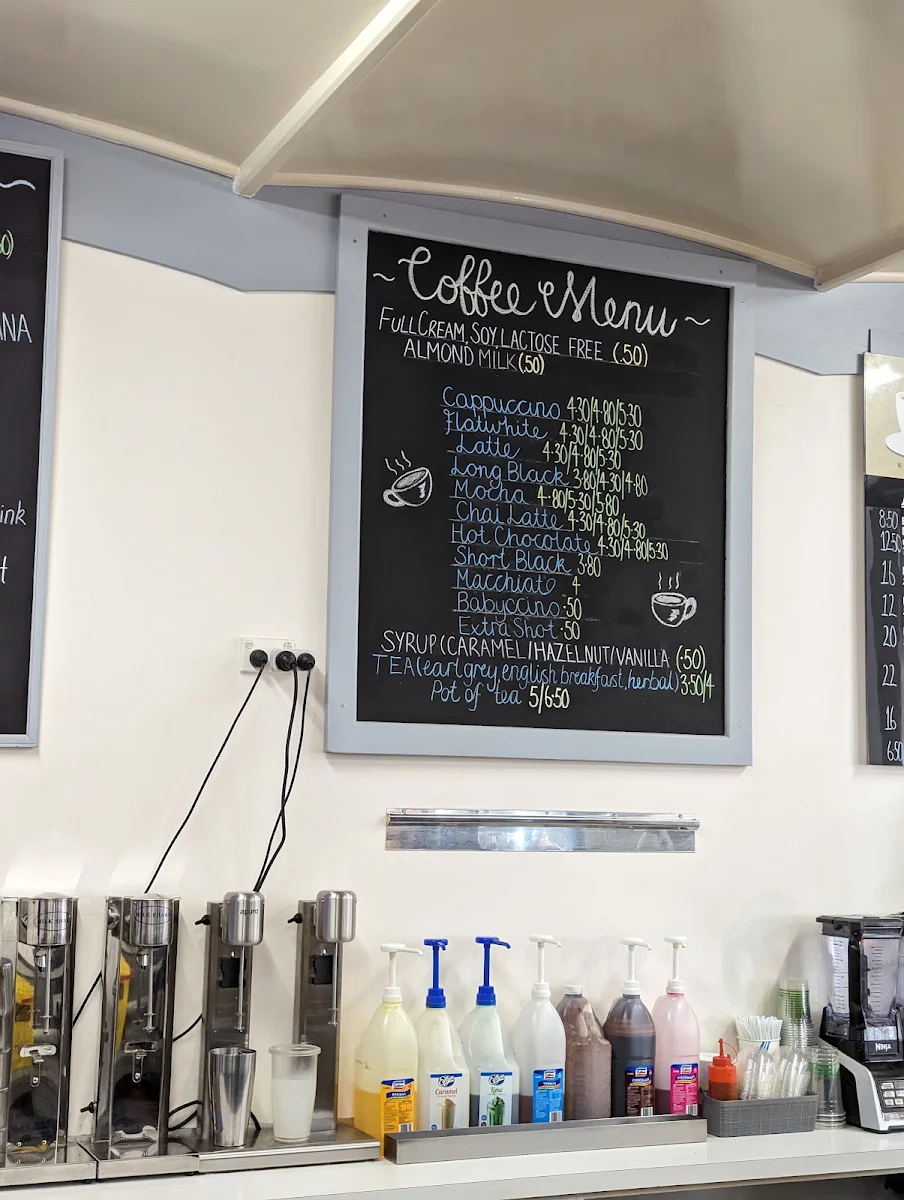 Coffee Menu
FULLCREAM, SOY, LACTOSE FREE (.50)
ALMOND MILK (.50)
Cappuccino 4·30/4·80/5·30
Flatwhite 4·30/4·80/5·30
Latte 4·30/4·80/5·30
Long Black 3·80/4·30/4·80
Mocha 4·80/5·30/5·80
Chai Latte 4·30/4·80/5·30
Hot Chocolate 4·30/4·80/5·30
Short Black 3·80
Macchiato 4
Babyccino ·50
Extra Shot ·50
SYRUP (CARAMEL/HAZELNUT/VANILLA (·50)
TEA (earl grey, english breakfast, herbal) 3·50/4
Pot of tea 5/6·50
ANA
ink
8·50
12·50
16
12
20
22
16
6·50
apuro
Caramel
Lime
NINJA